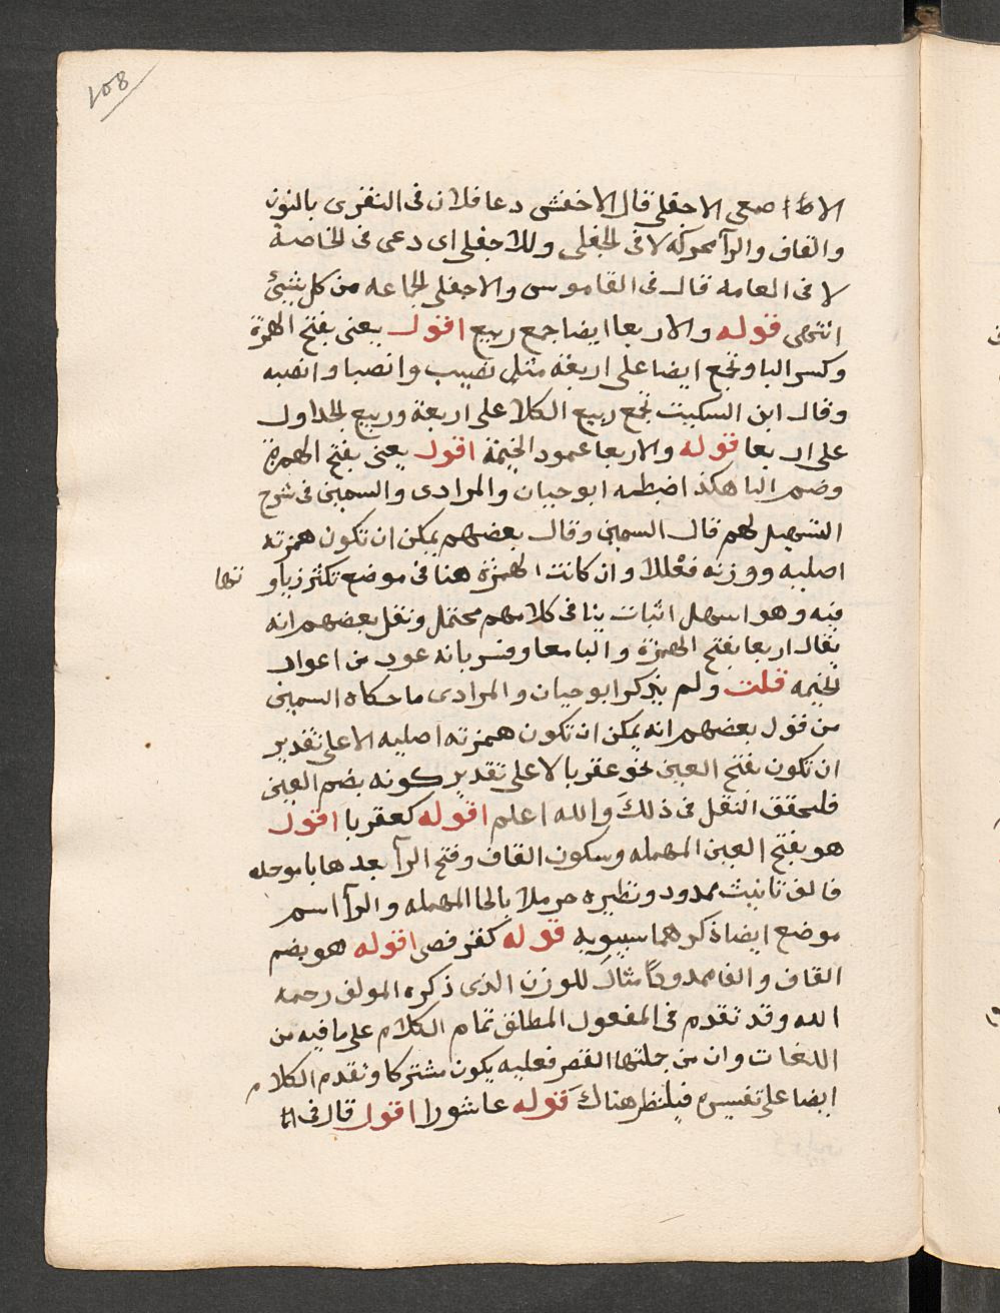 108
صمعى الاجفلى قال الاخفش دعا فلان فى النقرى بالنون
والقاف والرآ محركه لا فى الجفلى وللاجفلى اى دعى فى الخاصة
لا فى العامه قال فى القاموس والاجفلى الجماعه من كل شيئ
انتهى قوله والاربعا ايضا جمع ربيع اقول يعنى بفتح الهمزة
وكسر البا وتجمع ايضا على اربعة مثل نصيب وانصبا وانصبه
وقال ابن السكيت تجمع ربيع الكلا على اربعة وربيع الجداول
على اربعا قوله والاربعا عمود الخيمة اقول يعنى بفتح الهمزة
وضم البا هكذا ضبطه ابوحيان والمرادى والسمين فى شرح
التسهيل لهم قال السمين وقال بعضهم يمكن ان تكون همزته
اصليه ووزنه فعللا وان كانت الهمزة هنا فى موضع تكثر زياد تها
فيه وهو اسهل اثبات بنا فى كلامهم محتمل ونقل بعضهم انه
يقال اربعا بفتح الهمزة والبا معا وفسر بانه عود من اعواد
الخيمه قلت ولم يذكر ابوحيان والمرادى ما حكاه السمين
من قول بعضهم انه يمكن ان تكون همزته اصليه الا على تقدير
ان تكون بفتح العين نحو عقربا لا على تقدير كونه بضم العين
فليحقق النقل فى ذلك والله اعلم اقوله كعقربا اقول
هو بفتح العين المهمله وسكون القاف وفتح الرآ بعدها با موحده
فالف تانيث ممدود ونظيره حرملا بالحا المهمله والرآ اسم
موضع ايضا ذكرهما سيبويه قوله كقرفصى اقوله هو بضم
القاف والفا ممدودًا مثال للوزن الذى ذكره المولف رحمه
الله وقد تقدم فى المفعول المطلق تمام الكلام على ما فيه من
اللغات وان من جملتها القصر فعليه يكون مشتركا وتقدم الكلام
ايضا على تفسيره فلينظر هناك قوله عاشورا اقول قال فى